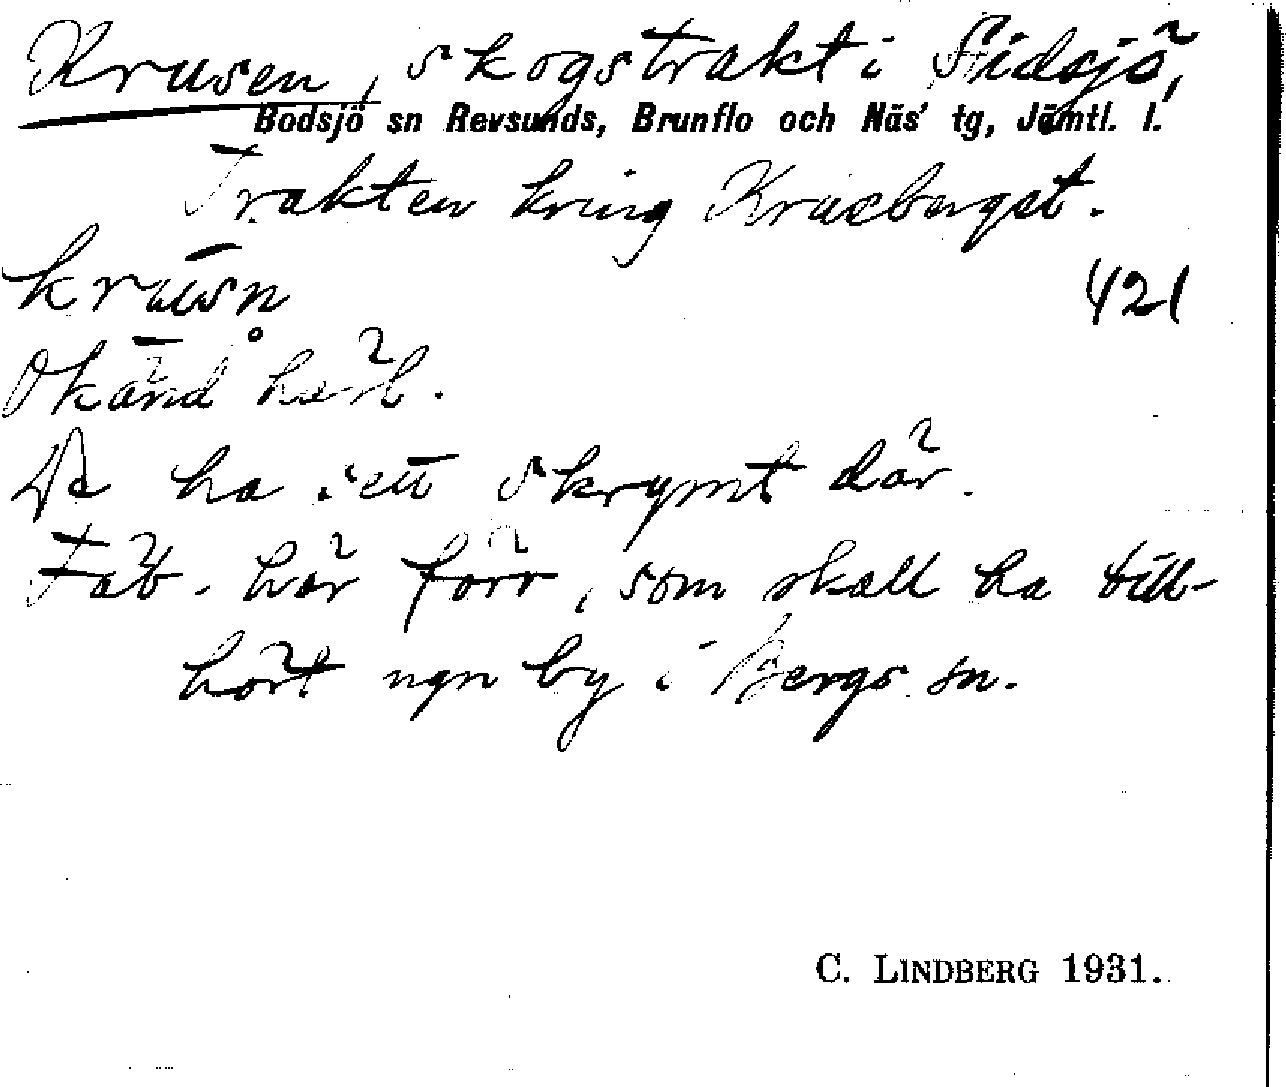 Krusen, skogstrakt i Sidsjö,
Bodsjö sn Revsunds, Brunflo och Näs' tg, Jämtl. l.
Trakten kring Krusberget.
krūsn̥ 421
Okänd härl.
De ha sett skrymt där.
Fäb. här förr, som skall ha till-
hört ngn by i Bergs sn.
C. LINDBERG 1931.